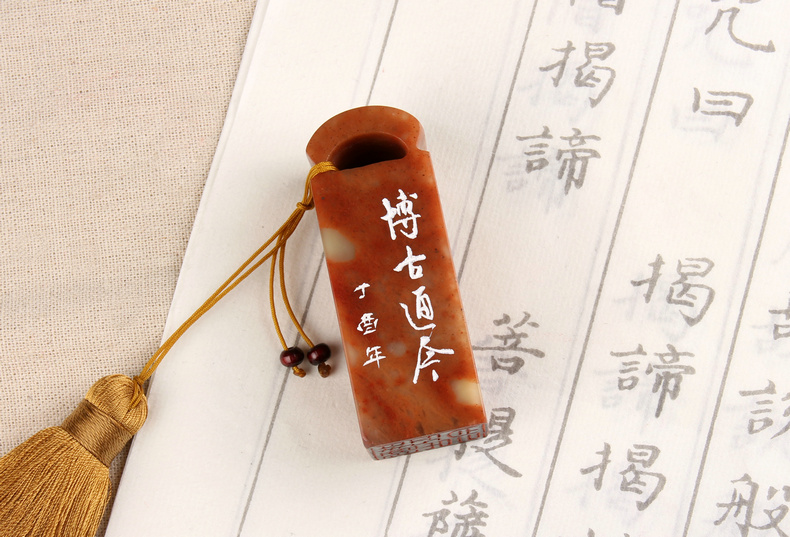 博古通今
丁酉年
說般
曰 揭諦揭
揭諦 菩提薩